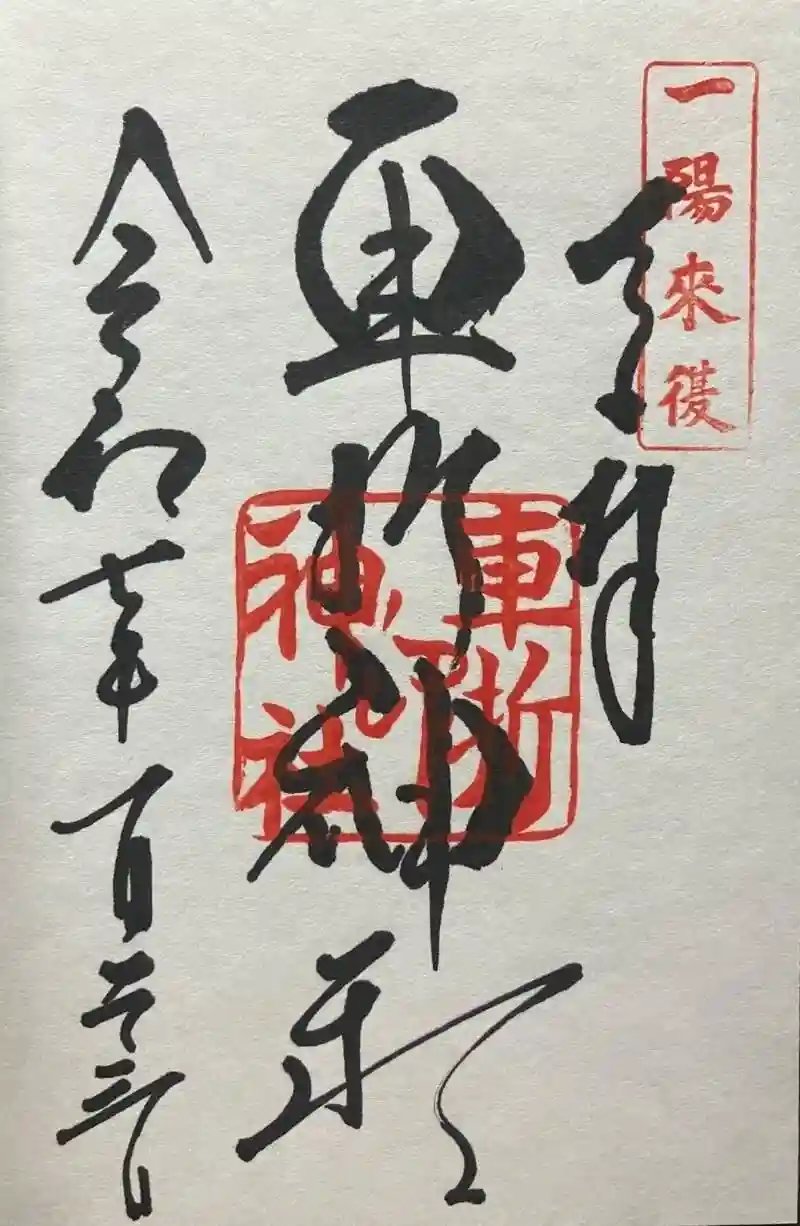 一陽來復
奉拝
車折神社
車折
之印
神社
令和七年一月二十三日